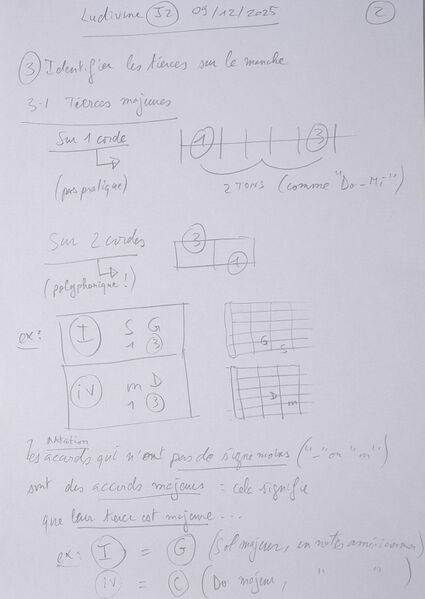 Ludivine J2 09/12/2025 2
3 Identifier les tierces sur le manche
3-1 Tierces majeures
Sur 1 corde
1 3
(pas pratique)
2 TONS (comme "Do-Mi")
Sur 2 cordes
3
1
(polyphonique !)
ex:
I S G
1 3
G
S
iv m D
1 3
D
m
Notation
les accords qui n'ont pas de signe moins ("-" or "m")
sont des accords majeurs = cela signifie
que leur tierce est majeure...
ex: I = G (Sol majeur, en notes américaines)
iv = C (Do majeur, " " )